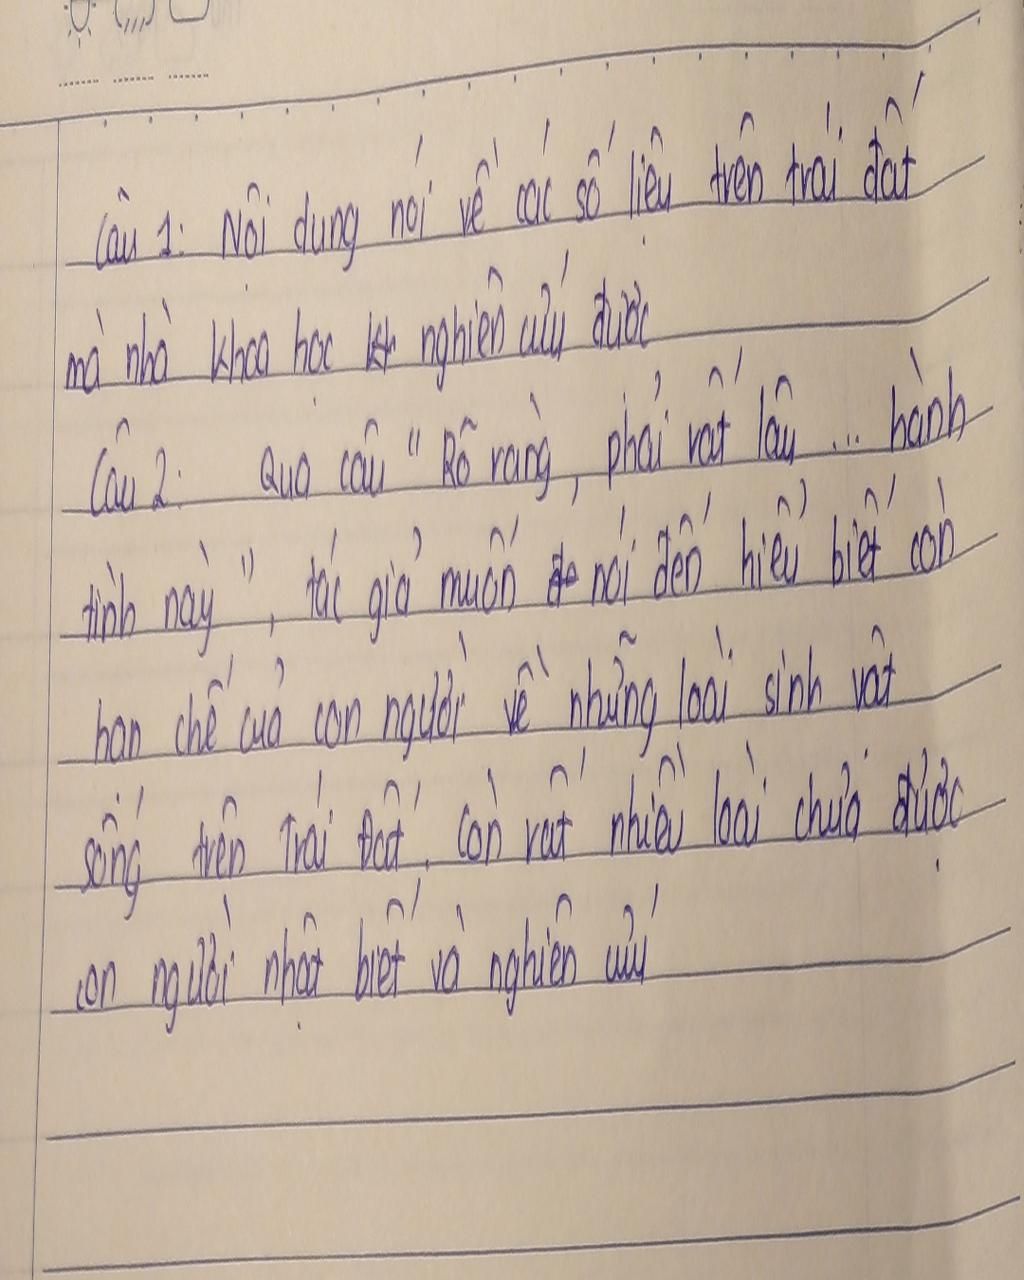 Câu 1: Nội dung nói về các số liệu trên trái đất
mà nhà khoa học nghiên cứu được
Câu 2: Qua câu "Rõ ràng, phải rất lâu ... hành
tinh này", tác giả muốn nói đến hiểu biết còn
hạn chế của con người về những loài sinh vật
sống trên Trái Đất. Còn rất nhiều loài chưa được
con người nhận biết và nghiên cứu